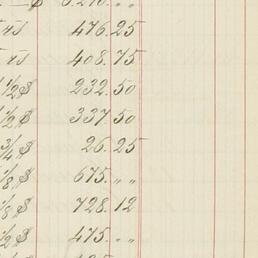 $ 6.210. „ „
476.25
408.75
1/2 $ 232.50
1/2 $ 337 50
3/4 $ 26.25
1/8 $ 675. „ „
1/8 $ 728.12
1/2 $ 475. „ „